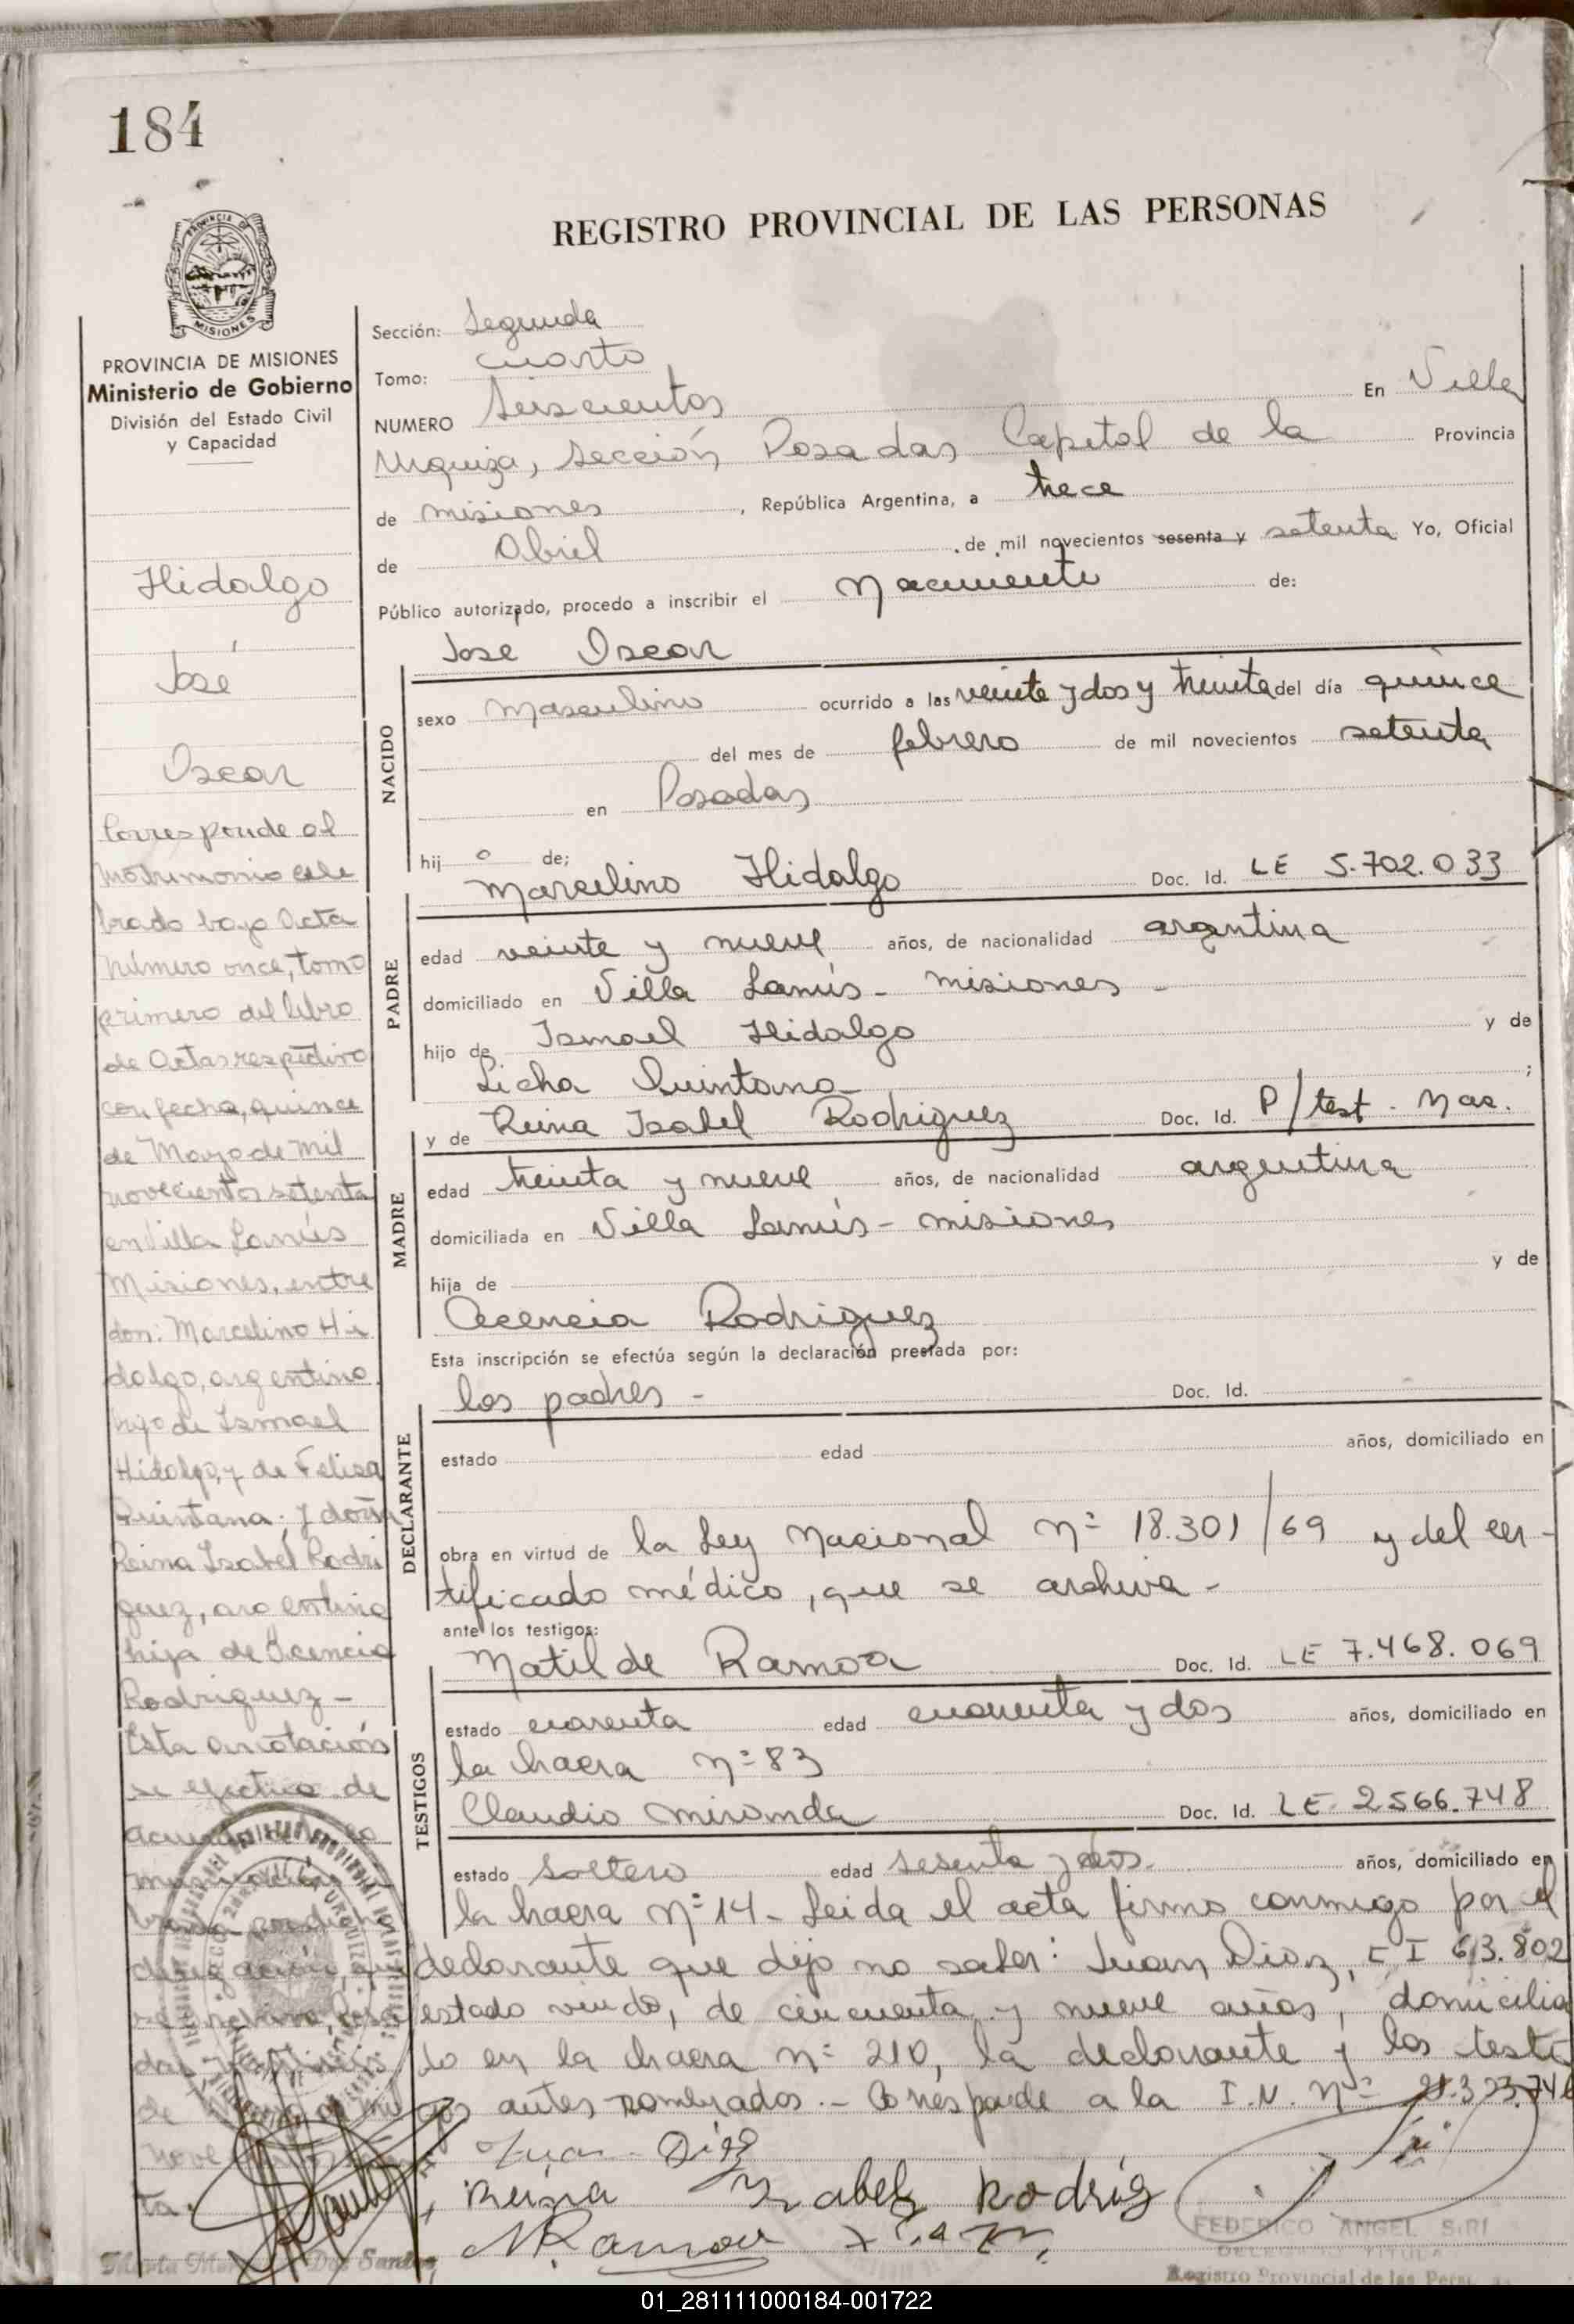 184
REGISTRO PROVINCIAL DE LAS PERSONAS
PROVINCIA DE MISIONES
MISIONES
PROVINCIA DE MISIONES
Ministerio de Gobierno
División del Estado Civil
y Capacidad
Hidalgo
José
Oscar
Corresponde al
Matrimonio cele
brado bajo Acta
número once, tomo
primero del libro
de Actas respectivo
con fecha, quince
de Mayo de Mil
novecientos setenta
en Villa Lanús
Misiones, entre
don: Marcelino Hi
dalgo, argentino
hijo de Ismael
Hidalgo, y de Felisa
Quintana. y doña
Reina Isabel Rodri
guez, argentina
hija de Acencia
Rodriguez -
Esta anotación
se efectua de
Sección: Segunda
Tomo: cuarto
NUMERO Seiscientos En Villa
Urquiza, Sección Posadas Capital de la Provincia
de misiones, República Argentina, a trece
de Abril de mil novecientos sesenta y setenta Yo, Oficial
Público autorizado, procedo a inscribir el Nacimiento de:
Jose Oscar
NACIDO
sexo Masculino ocurrido a las veinte y dos y treinta del día quince
del mes de febrero de mil novecientos setenta
en Posadas
hij o de;
Marcelino Hidalgo Doc. Id. LE 5.702.033
PADRE
edad veinte y nueve años, de nacionalidad argentina
domiciliado en Villa Lanús - misiones -
hijo de Ismael Hidalgo y de
Licha Quintana ;
y de Reina Isabel Rodriguez Doc. Id. P/test. Nac.
MADRE
edad treinta y nueve años, de nacionalidad argentina
domiciliada en Villa Lanús - misiones
hija de y de
Acencia Rodriguez
Esta inscripción se efectúa según la declaración prestada por:
los padres - Doc. Id.
DECLARANTE
estado edad años, domiciliado en
obra en virtud de la Ley Nacional Nº 18.301/69 y del cer-
tificado médico, que se archiva -
ante los testigos:
Matilde Ramoa Doc. Id. LE 7.468.069
TESTIGOS
estado cuarenta edad cuarenta y dos años, domiciliado en
la chacra Nº 83
Claudio Miranda Doc. Id. LE 2566.748
estado soltero edad sesenta y dos años, domiciliado en
la chacra Nº 14 - Leida el acta firma conmigo por el
declarante que dijo no saber: Juan Diaz, 613.802
estado viudo, de cincuenta y nueve años, domicilia
do en la chacra Nº 210, la declarante y los testi
gos antes nombrados. - Corresponde a la I.N. Nº
Juan Díaz
Reina Yzabel Rodríg
M Ramoa
FEDERICO ANGEL SIRI
DELEGADO TITULAR
Registro Provincial de las
01_281111000184-001722